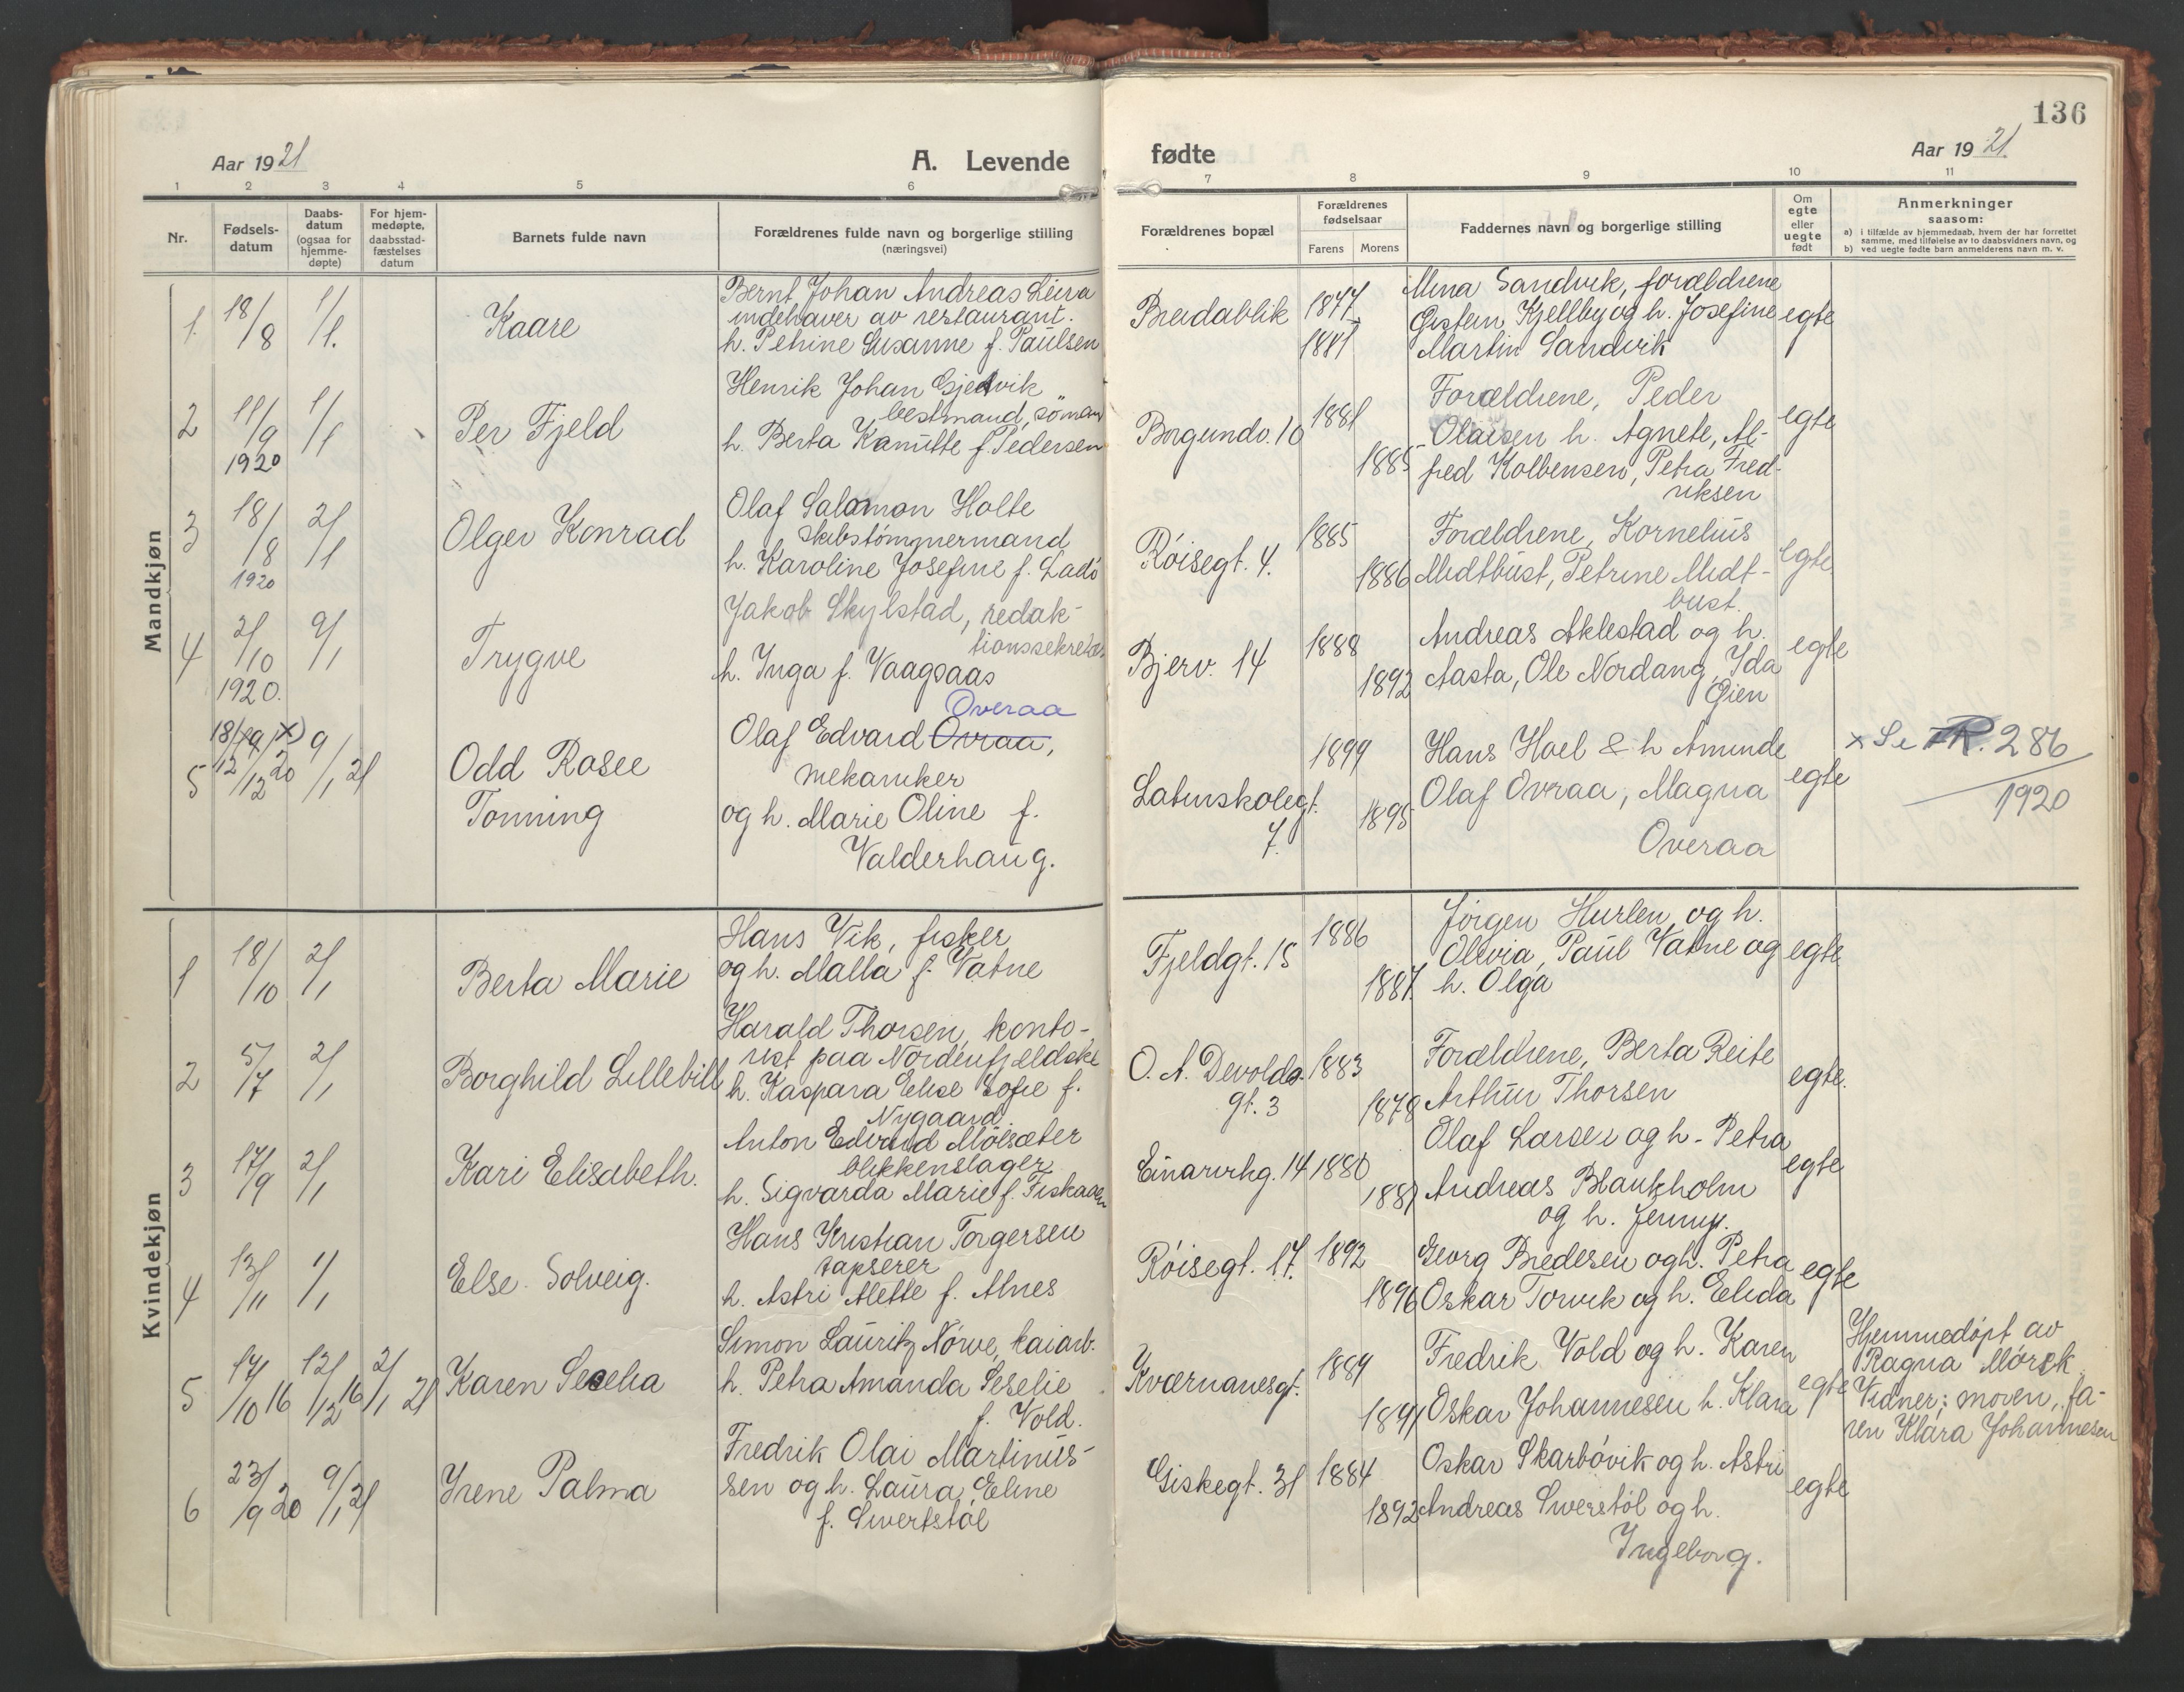 136
Aar 1921
A. Levende
fødte
Aar 1921
1 2 3 4 5 6 7 8 9 10 11
Nr.
Fødsels-
datum
Daabs-
datum
(ogsaa for
hjemme-
døpte)
For hjem-
medøpte,
daabsstad-
fæstelses
datum
Barnets fulde navn
Forældrenes fulde navn og borgerlige stilling
(næringsvei)
Forældrenes bopæl
Forældrenes
fødselsaar
Farens Morens
Faddernes navn og borgerlige stilling
Om
egte
eller
uegte
født
Anmerkninger
saasom:
a) i tilfælde av hjemmedaab, hvem der har forrettet
samme, med tilføielse av to daabsvidners navn, og
b) ved uegte fødte barn anmelderens navn m. v.
Mandkjøn
1. 18/8 1/1.
Kaare
Bernt Johan Andreas Leira
indehaver av restaurant.
h. Petrine Susanne f. Paulsen
Breidablik
1877
1881
Mina Sandvik, forældrene
Øistein Kjellby og h. Josefine
Martin Sandvik
egte
2 11/9 1920 1/1
Per Fjeld
Henrik Johan Gjedvik
bestmand, sömand
h. Berta Kanutte f. Pedersen
Borgundv. 10
1881
1885
Forældrene, Peder
Olaisen h. Agnete, Al-
fred Kolbensen, Petra Fred-
riksen
egte
3 18/8 1920 2/1
Olger Konrad
Olaf Salamon Holte
skibstömmermand
h. Karoline Josefine f. Ladö
Röisegt. 4.
1885
1886
Forældrene, Kornelius
Midtbust, Petrine Midt-
bust.
egte
4 2/10 1920. 9/1
Trygve
Jakob Skylstad, redak-
tionssekretær
h. Inga f. Vaagsaas
Bjerv. 14
1888
1892
Andreas Aklestad og h.
Aasta, Ole Nordang, Ida
Øien
egte
5 18/12 x) 19/12 20 9/1 21
Odd Rosee
Tonning
Overaa
Olaf Edvard Ovraa,
mekaniker
og h. Marie Oline f.
Valderhaug.
Latinskolegt.
7.
1899
1895
Hans Hoel & h Aminde
Olaf Ovraa, Magna
Overaa
egte
x Se R. 286
1920
Kvindekjøn
1 18/10 2/1
Berta Marie
Hans Vik, fisker
og h. Malla f. Vatne
Fjeldgt. 15
1886
1887.
Jörgen Hurlen og h.
Olivia, Paul Vatne og
h. Olga
egte
2 5/7 2/1
Borghild Lillebill
Harald Thorsen, konto-
rist paa Nordenfjeldske
h. Kaspara Elise Sofie f.
Nygaard.
O. A. Devolds.
gt. 3
1883
1878
Forældrene, Berta Reite
Arthur Thorsen
egte.
3 17/9 2/1
Kari Elisabeth.
Anton Edvard Mölsæter
blikkenslager
h. Sigvarda Marie f. Fiskaaen
Einarvikg. 14
1880
1887
Olaf Larsen og h. Petra
Andreas Blankholm
og h. Jenny.
egte
4 13/11 1/1
Else Solveig.
Hans Kristian Torgersen
tapserer
h. Astri Alette f. Alnes
Röisegt. 17.
1892
1896
Georg Bredesen og h. Petra
Oskar Torvik og h. Elida
egte
5 17/10 16 12/12 16 2/1 21
Karen Seselia
Simon Lauritz Nörve, kaiarb.
h. Petra Amanda Seselie
f. Vold.
Kværnanesgt.
1889
1891
Fredrik Vold og h. Karen
Oskar Johannesen h. Klara
egte
Hjemmedöpt av
Ragna Mörck
Vidner: moren, fa-
ren Klara Johannesen
6 23/9 20 9/1 21
Irene Palma
Fredrik Olai Martinus-
sen og h. Laura Eline
f. Sivertstöl
Giskegt. 31
1884
1892
Oskar Skarbövik og h. Astri
Andreas Siverstöl og h.
Ingeborg.
egte